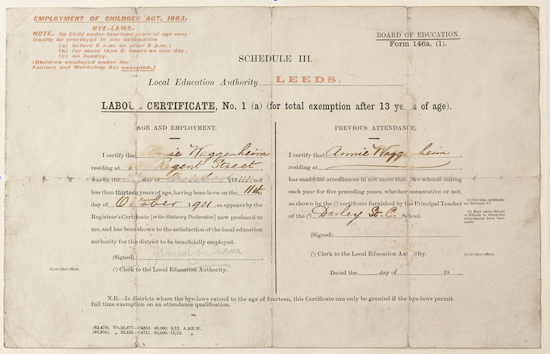 EMPLOYMENT OF CHILDREN ACT, 1903.
BYE-LAWS.
NOTE. No Child under fourteen years of age may
legally be employed in any occupation
(a) before 6 a.m. or after 8 p.m.;
(b) for more than 8 hours on one day;
(c) on Sunday.
(Children employed under the
Factory and Workshop Act excepted.)
BOARD OF EDUCATION.
Form 146a. (1).
SCHEDULE III.
Local Education Authority LEEDS.
LABOUR CERTIFICATE, No. 1 (a) (for total exemption after 13 years of age).
AGE AND EMPLOYMENT.
I certify that Annie Waggenheim
residing at Regent Street
was on the day of 19
not less than thirteen years of age, having been born on the 11th
day of October 1901, as appears by the
Registrar's Certificate (or the Statutory Declaration) now produced to
me, and has been shown to the satisfaction of the local education
authority for the district to be beneficially employed.
(Signed)
(1) Clerk to the Local Education Authority.
(1) Or other officer.
PREVIOUS ATTENDANCE.
I certify that Annie Waggenheim
residing at
has made 350 attendances in not more than two schools during
each year for five preceding years, whether consecutive or not,
as shown by the (1) certificate furnished by the Principal Teacher
of the (2) Darley St. C. school.
(Signed)
(1) Clerk to the Local Education Authority.
Dated the day of 19
(1) Or other officer.
N.B.—In districts where the bye-laws extend to the age of fourteen, this Certificate can only be granted if the bye-laws permit
full time exemption on an attendance qualification.